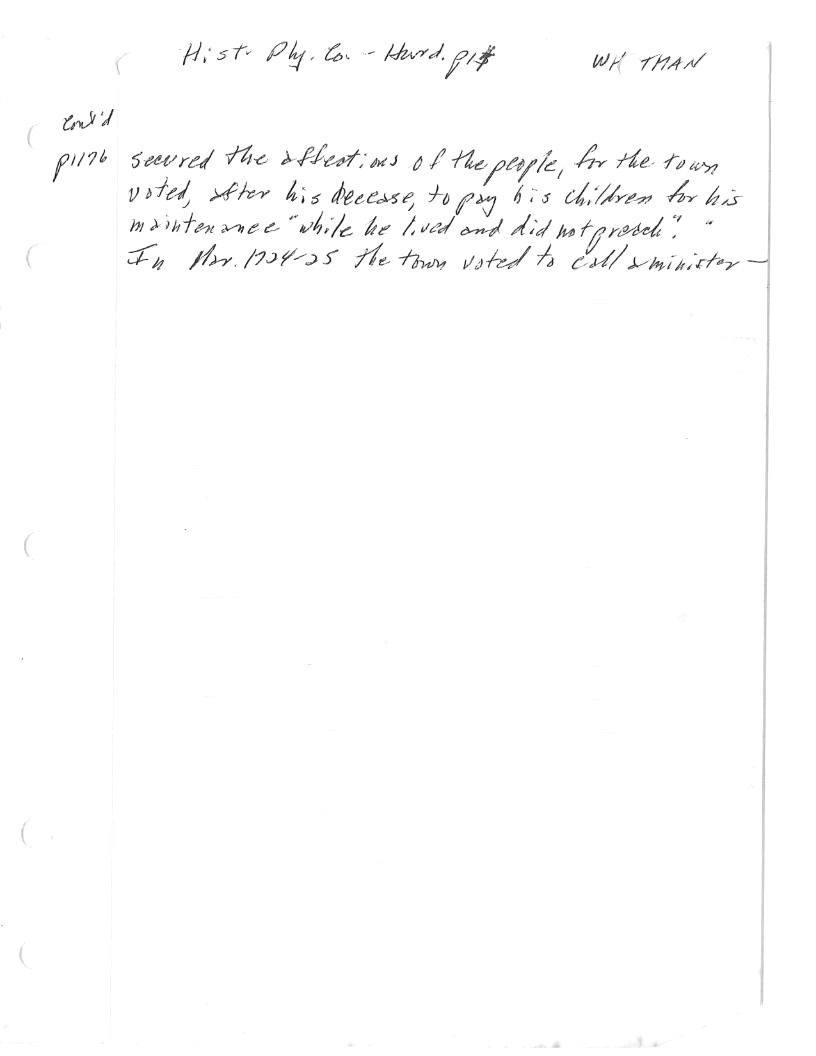 Hist. Ply. Co. - Hurd. p1
WHTMAN
Cont'd
p1176 secured the affections of the people, for the town
voted, after his decease, to pay his children for his
maintenance "while he lived and did not preach". "
In Mar. 1724-25 the town voted to call a minister —